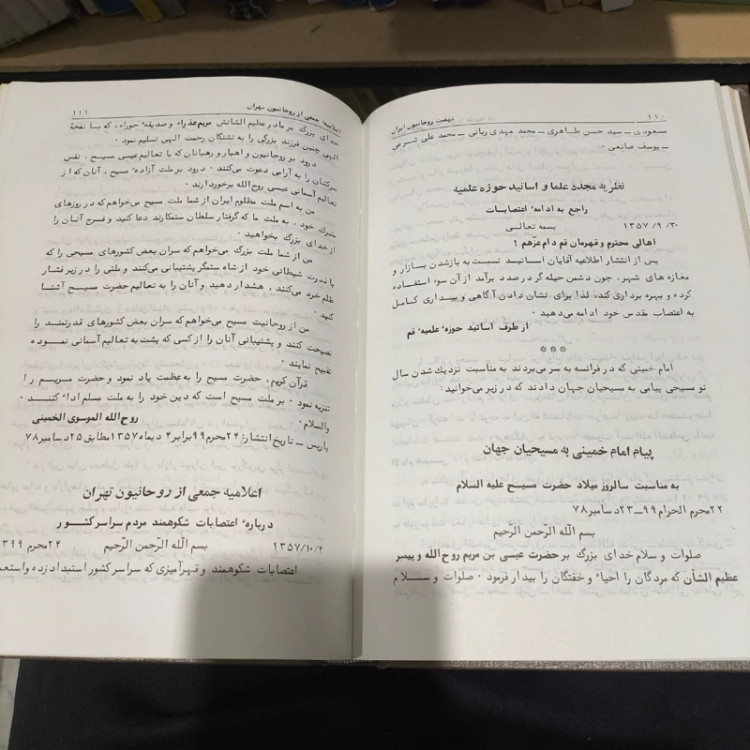 ۱۱۰ نهضت روحانیون ایران
مسعودی ــ سید حسن طاهری ــ محمد مهدی ربانی ــ محمد علی شرعی
ــ یوسف صانعی
نظریه مجدد علما و اساتید حوزه علمیه
راجع به ادامهٔ اعتصابات
بسمه تعالی ۱۳۵۷/۹/۳۰
اهالی محترم و قهرمان قم دام عزّهم !
پس از انتشار اطلاعیه آقایان اساتید نسبت به بازشدن بازار و
مغازه های شهر، چون دشمن حیله گر درصدد برآمد از آن سوء استفاده
کرده و بهره برداری کند، لذا برای نشان دادن آگاهی و بیداری کامل
به اعتصاب مقدس خود ادامه می‌دهید .
از طرف اساتید حوزهٔ علمیهٔ قم
***
امام خمینی که در فرانسه به سر می‌برند به مناسبت نزدیک شدن سال
نو مسیحی پیامی به مسیحیان جهان دادند که در زیر می‌خوانید:
پیام امام خمینی به مسیحیان جهان
به مناسبت سالروز میلاد حضرت مسیح علیه السلام
۲۲ محرم الحرام ۹۹ــ۲۳ دسامبر ۷۸
بسم اللّه الرّحمن الرّحیم
صلوات و سلام خدای بزرگ بر حضرت عیسی بن مریم روح الله و پیمبر
عظیم الشأن که مردگان را احیاء و خفتگان را بیدار فرمود . صلوات و سلام
اعلامیه جمعی از روحانیون تهران ۱۱۱
خدای بزرگ بر مادر عظیم الشانش مریم عذراء و صدیقهٔ حوراء، که با نفخهٔ
الهی چنین فرزند بزرگی را به تشنگان رحمت الهی تسلیم نمود .
درود بر روحانیون و احبار و رهبانان که با تعالیم عیسی مسیح ، نفس
سرکشان را به آرامی دعوت می‌کنند . درود بر ملت آزادهٔ مسیح ، آنان که از
تعالیم آسمانی عیسی روح الله برخوردارند .
من به اسم ملت مظلوم ایران از شما ملت مسیح می‌خواهم که در روزهای
متبرک خود ، به ملت ما که گرفتار سلطان ستمکارند دعا کنید و فرج آنان را
از خدای بزرگ بخواهید .
من از شما ملت بزرگ می‌خواهم که سران بعض کشورهای مسیحی را که
با قدرت شیطانی خود از شاه ستمگر پشتیبانی می‌کنند و ملتی را در زیر فشار
ظلم خود می‌کنند ، هشدار دهید و آنان را به تعالیم حضرت مسیح آشنا
کنید .
من از روحانیت مسیح می‌خواهم که سران بعض کشورهای قدرتمند را
نصیحت کنند و پشتیبانی آنان را از کسی که پشت به تعالیم آسمانی نموده
تقبیح نمایند .
قرآن کریم ، حضرت مسیح را به عظمت یاد نمود و حضرت مریم را
تنزیه نمود . بر ملت مسیح است که دین خود را به ملت مسلم اداء کنند .
والسلام .
روح الله الموسوی الخمینی
پاریس ــ تاریخ انتشار: ۲۴ محرم ۹۹ برابر ۴ دیماه ۱۳۵۷ مطابق ۲۵ دسامبر ۷۸
اعلامیه جمعی از روحانیون تهران
دربارهٔ اعتصابات شکوهمند مردم سراسر کشور
۲۴ محرم ۳۹۹ بسم اللّه الرّحمن الرّحیم ۱۳۵۷/۱۰/۴
اعتصابات شکوهمند و قهرآمیزی که سراسر کشور استبداد زده و استعم